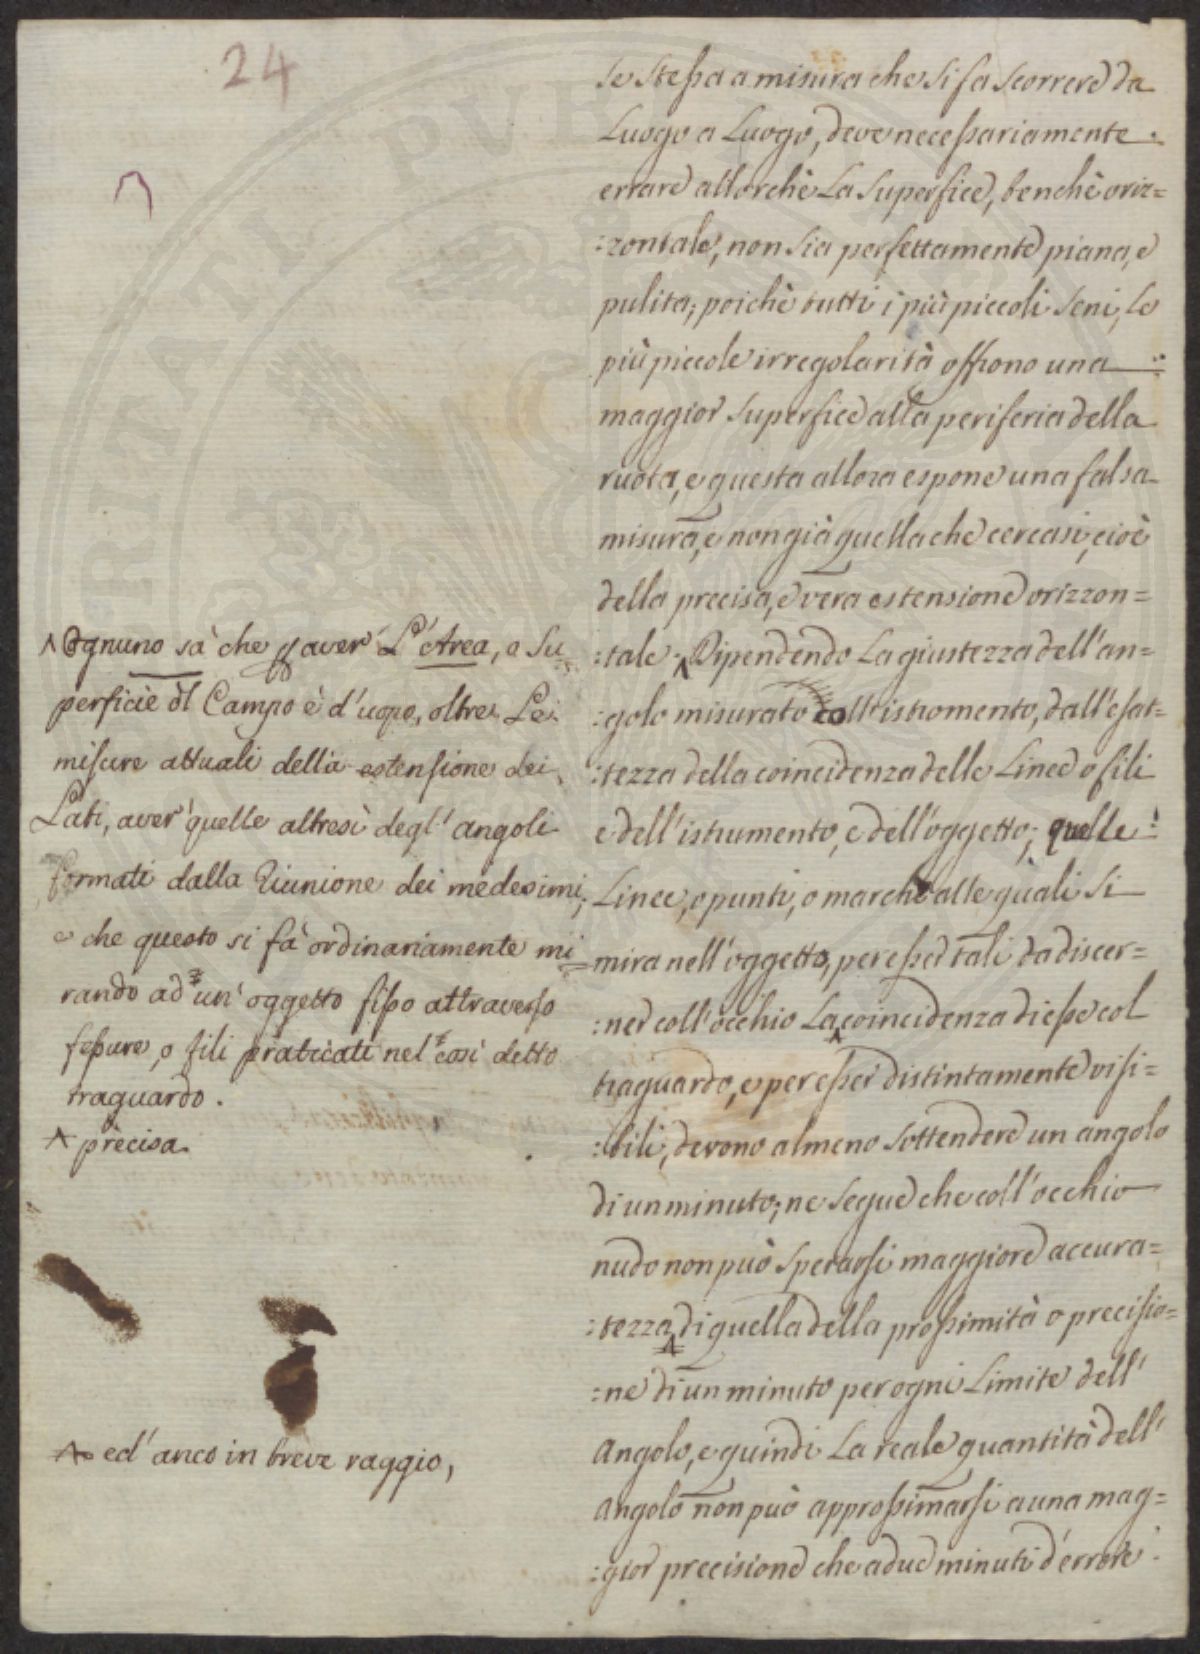 24
se stessa a misura che si fa scorrere da
Luogo a Luogo, deve necessariamente
errare allorchè La Superfice, benchè oriz=
:zontale, non sia perfettamente piana, e
pulita; poichè tutti i più piccoli seni, Le
più piccole irregolarità offrono una
maggior Superfice alla periferia della
ruota, e questa allora espone una falsa
misura, e non già quella che cercasi, cioè
della precisa, e vera estensione orizzon=
:tale. ^ Dipendendo La giustezza dell'an=
:golo misurato coll'istromento, dall'esat=
:tezza della coincidenza delle Linee o fili
e dell'istrumento, e dell'oggetto; quelle
Linee, o punti, o marche alle quali si
mira nell'oggetto, per esser tali da discer=
:ner coll'occhio La ^ coincidenza di esse col
traguardo, e per esser distintamente visi=
:bili, devono almeno sottendere un angolo
di un minuto; ne segue che coll'occhio
nudo non può sperarsi maggiore accura=
:tezza ^ di quella della prossimità o precisio=
:ne di un minuto per ogni Limite dell'
Angolo, e quindi La reale quantità dell'
Angolo non può approssimarsi a una mag=
:gior precisione che a due minuti d'errore.
^ Ognuno sà che per aver L'Area, o Su
perficie del Campo è d'uopo, oltre Le
misure attuali della estensione dei
Lati, aver quelle altresì degl'angoli
formati dalla riunione dei medesimi;
e che questo si fà ordinariamente mi
rando ad un'oggetto fisso attraverso
fessure, o fili praticati nel così detto
traguardo.
^ precisa
^ ed'anco in breve raggio,